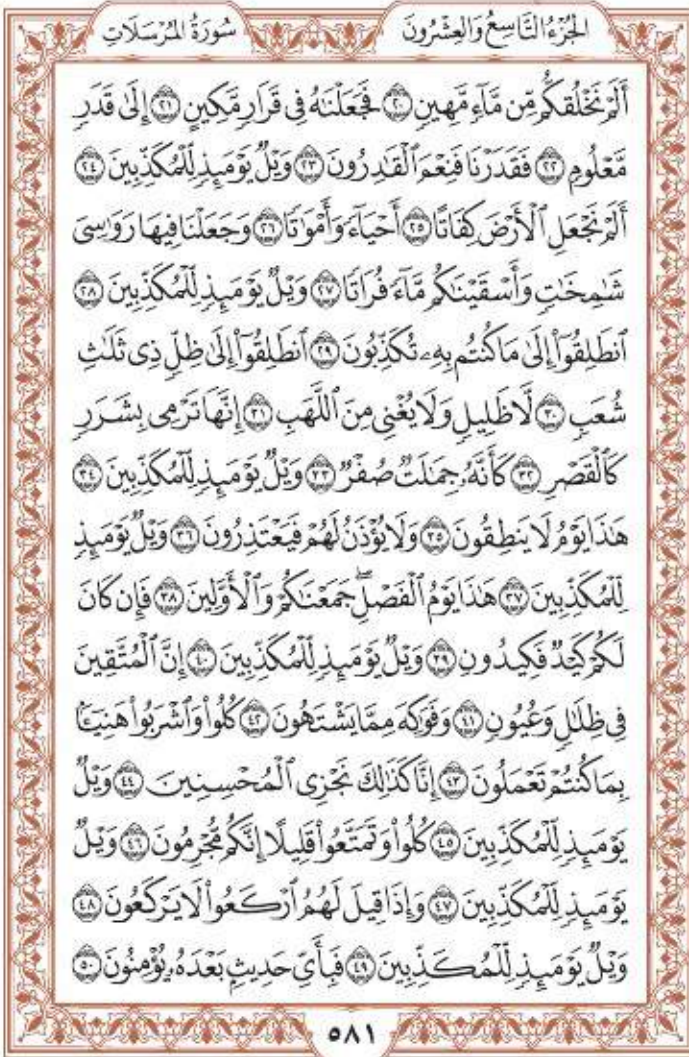 الجُزْءُ التَّاسِعُ وَالعِشْرُونَ سُورَةُ المُرْسَلَاتِ
أَلَمْ نَخْلُقكُّم مِّن مَّآءٖ مَّهِينٖ ٢٠ فَجَعَلْنَٰهُ فِي قَرَارٖ مَّكِينٍ ٢١ إِلَىٰ قَدَرٖ
مَّعْلُومٖ ٢٢ فَقَدَرْنَا فَنِعْمَ ٱلْقَٰدِرُونَ ٢٣ وَيْلٞ يَوْمَئِذٖ لِّلْمُكَذِّبِينَ ٢٤
أَلَمْ نَجْعَلِ ٱلْأَرْضَ كِفَاتًا ٢٥ أَحْيَآءٗ وَأَمْوَٰتٗا ٢٦ وَجَعَلْنَا فِيهَا رَوَٰسِيَ
شَٰمِخَٰتٖ وَأَسْقَيْنَٰكُم مَّآءٗ فُرَاتٗا ٢٧ وَيْلٞ يَوْمَئِذٖ لِّلْمُكَذِّبِينَ ٢٨
ٱنطَلِقُوٓاْ إِلَىٰ مَا كُنتُم بِهِۦ تُكَذِّبُونَ ٢٩ ٱنطَلِقُوٓاْ إِلَىٰ ظِلّٖ ذِي ثَلَٰثِ
شُعَبٖ ٣٠ لَّا ظَلِيلٖ وَلَا يُغْنِي مِنَ ٱللَّهَبِ ٣١ إِنَّهَا تَرْمِي بِشَرَرٖ
كَٱلْقَصْرِ ٣٢ كَأَنَّهُۥ جِمَٰلَتٞ صُفْرٞ ٣٣ وَيْلٞ يَوْمَئِذٖ لِّلْمُكَذِّبِينَ ٣٤
هَٰذَا يَوْمُ لَا يَنطِقُونَ ٣٥ وَلَا يُؤْذَنُ لَهُمْ فَيَعْتَذِرُونَ ٣٦ وَيْلٞ يَوْمَئِذٖ
لِّلْمُكَذِّبِينَ ٣٧ هَٰذَا يَوْمُ ٱلْفَصْلِۖ جَمَعْنَٰكُمْ وَٱلْأَوَّلِينَ ٣٨ فَإِن كَانَ
لَكُمْ كَيْدٞ فَكِيدُونِ ٣٩ وَيْلٞ يَوْمَئِذٖ لِّلْمُكَذِّبِينَ ٤٠ إِنَّ ٱلْمُتَّقِينَ
فِي ظِلَٰلٖ وَعُيُونٖ ٤١ وَفَوَٰكِهَ مِمَّا يَشْتَهُونَ ٤٢ كُلُواْ وَٱشْرَبُواْ هَنِيٓـَٔۢا
بِمَا كُنتُمْ تَعْمَلُونَ ٤٣ إِنَّا كَذَٰلِكَ نَجْزِي ٱلْمُحْسِنِينَ ٤٤ وَيْلٞ
يَوْمَئِذٖ لِّلْمُكَذِّبِينَ ٤٥ كُلُواْ وَتَمَتَّعُواْ قَلِيلًا إِنَّكُم مُّجْرِمُونَ ٤٦ وَيْلٞ
يَوْمَئِذٖ لِّلْمُكَذِّبِينَ ٤٧ وَإِذَا قِيلَ لَهُمُ ٱرْكَعُواْ لَا يَرْكَعُونَ ٤٨
وَيْلٞ يَوْمَئِذٖ لِّلْمُكَذِّبِينَ ٤٩ فَبِأَيِّ حَدِيثِۭ بَعْدَهُۥ يُؤْمِنُونَ ٥٠
٥٨١